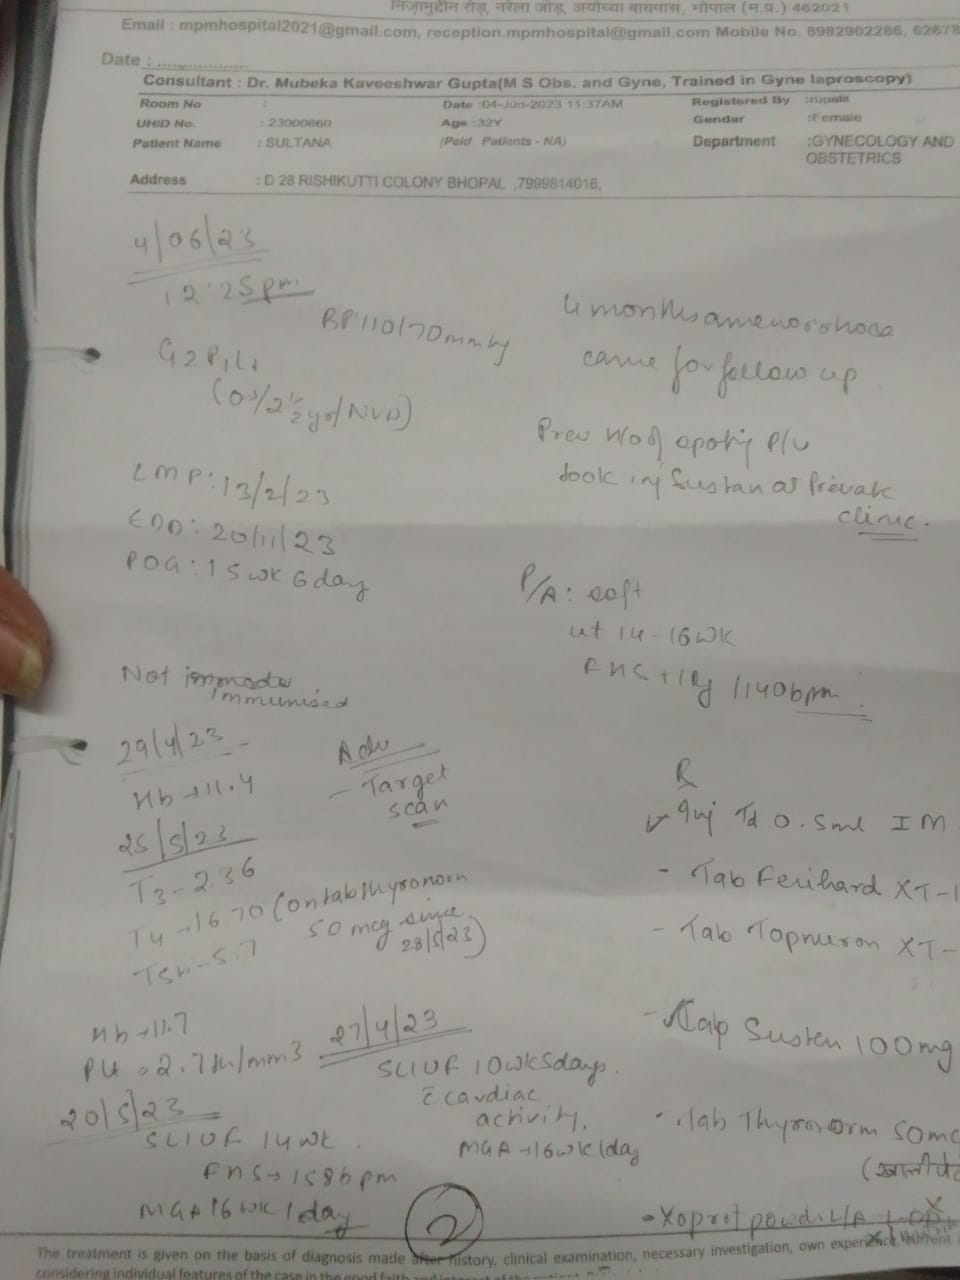 निज़ामुद्दीन रोड़, नरेला जोड़, अयोध्या बायपास, भोपाल (म.प्र.) 462021
Email : mpmhospital2021@gmail.com, reception.mpmhospital@gmail.com Mobile No. 8982962286, 62678
Date : ..................
Consultant : Dr. Mubeka Kaveeshwar Gupta(M S Obs. and Gyne, Trained in Gyne laproscopy)
Room No : Date :04-Jun-2023 11:37AM Registered By :rupali
UHID No. : 23000660 Age :32Y Gender :Female
Patient Name : SULTANA (Paid Patients - NA) Department :GYNECOLOGY AND OBSTETRICS
Address : D 28 RISHIKUTTI COLONY BHOPAL ,7999814016,
4/06/23
12:25pm
BP 110/70mmhg
G2P1L1
LMP: 13/2/23
EDD: 20/11/23
POG: 15wk 6day
4 months
came for follow up
Prev H/o P/V
took inj Susten at Private clinic.
P/A: soft
ut 14-16wk
FHS + 140bpm
Not
immunised
29/4/23
Hb → 11.4
25/5/23
T3 - 2.36
T4 → 16.70 (on tab thyronorm
50 mcg since
28/5/23)
TSH - 5.7
Hb → 11.7
Adv
- Target
scan
27/4/23
SLIUF 10wk5days.
c̄ cardiac
activity.
MGA → 16wk 1day
20/5/23
SLIUF 14wk
FHS → 158bpm
MGA 16wk 1day
2
R
Inj Td 0.5ml IM
- Tab Ferihard XT-1
- Tab XT-
Susten 100mg
- Tab Thyronorm 50mc
- Xoprot powd.
The treatment is given on the basis of diagnosis made after history, clinical examination, necessary investigation, own experience,
considering individual features of the case in the good faith and